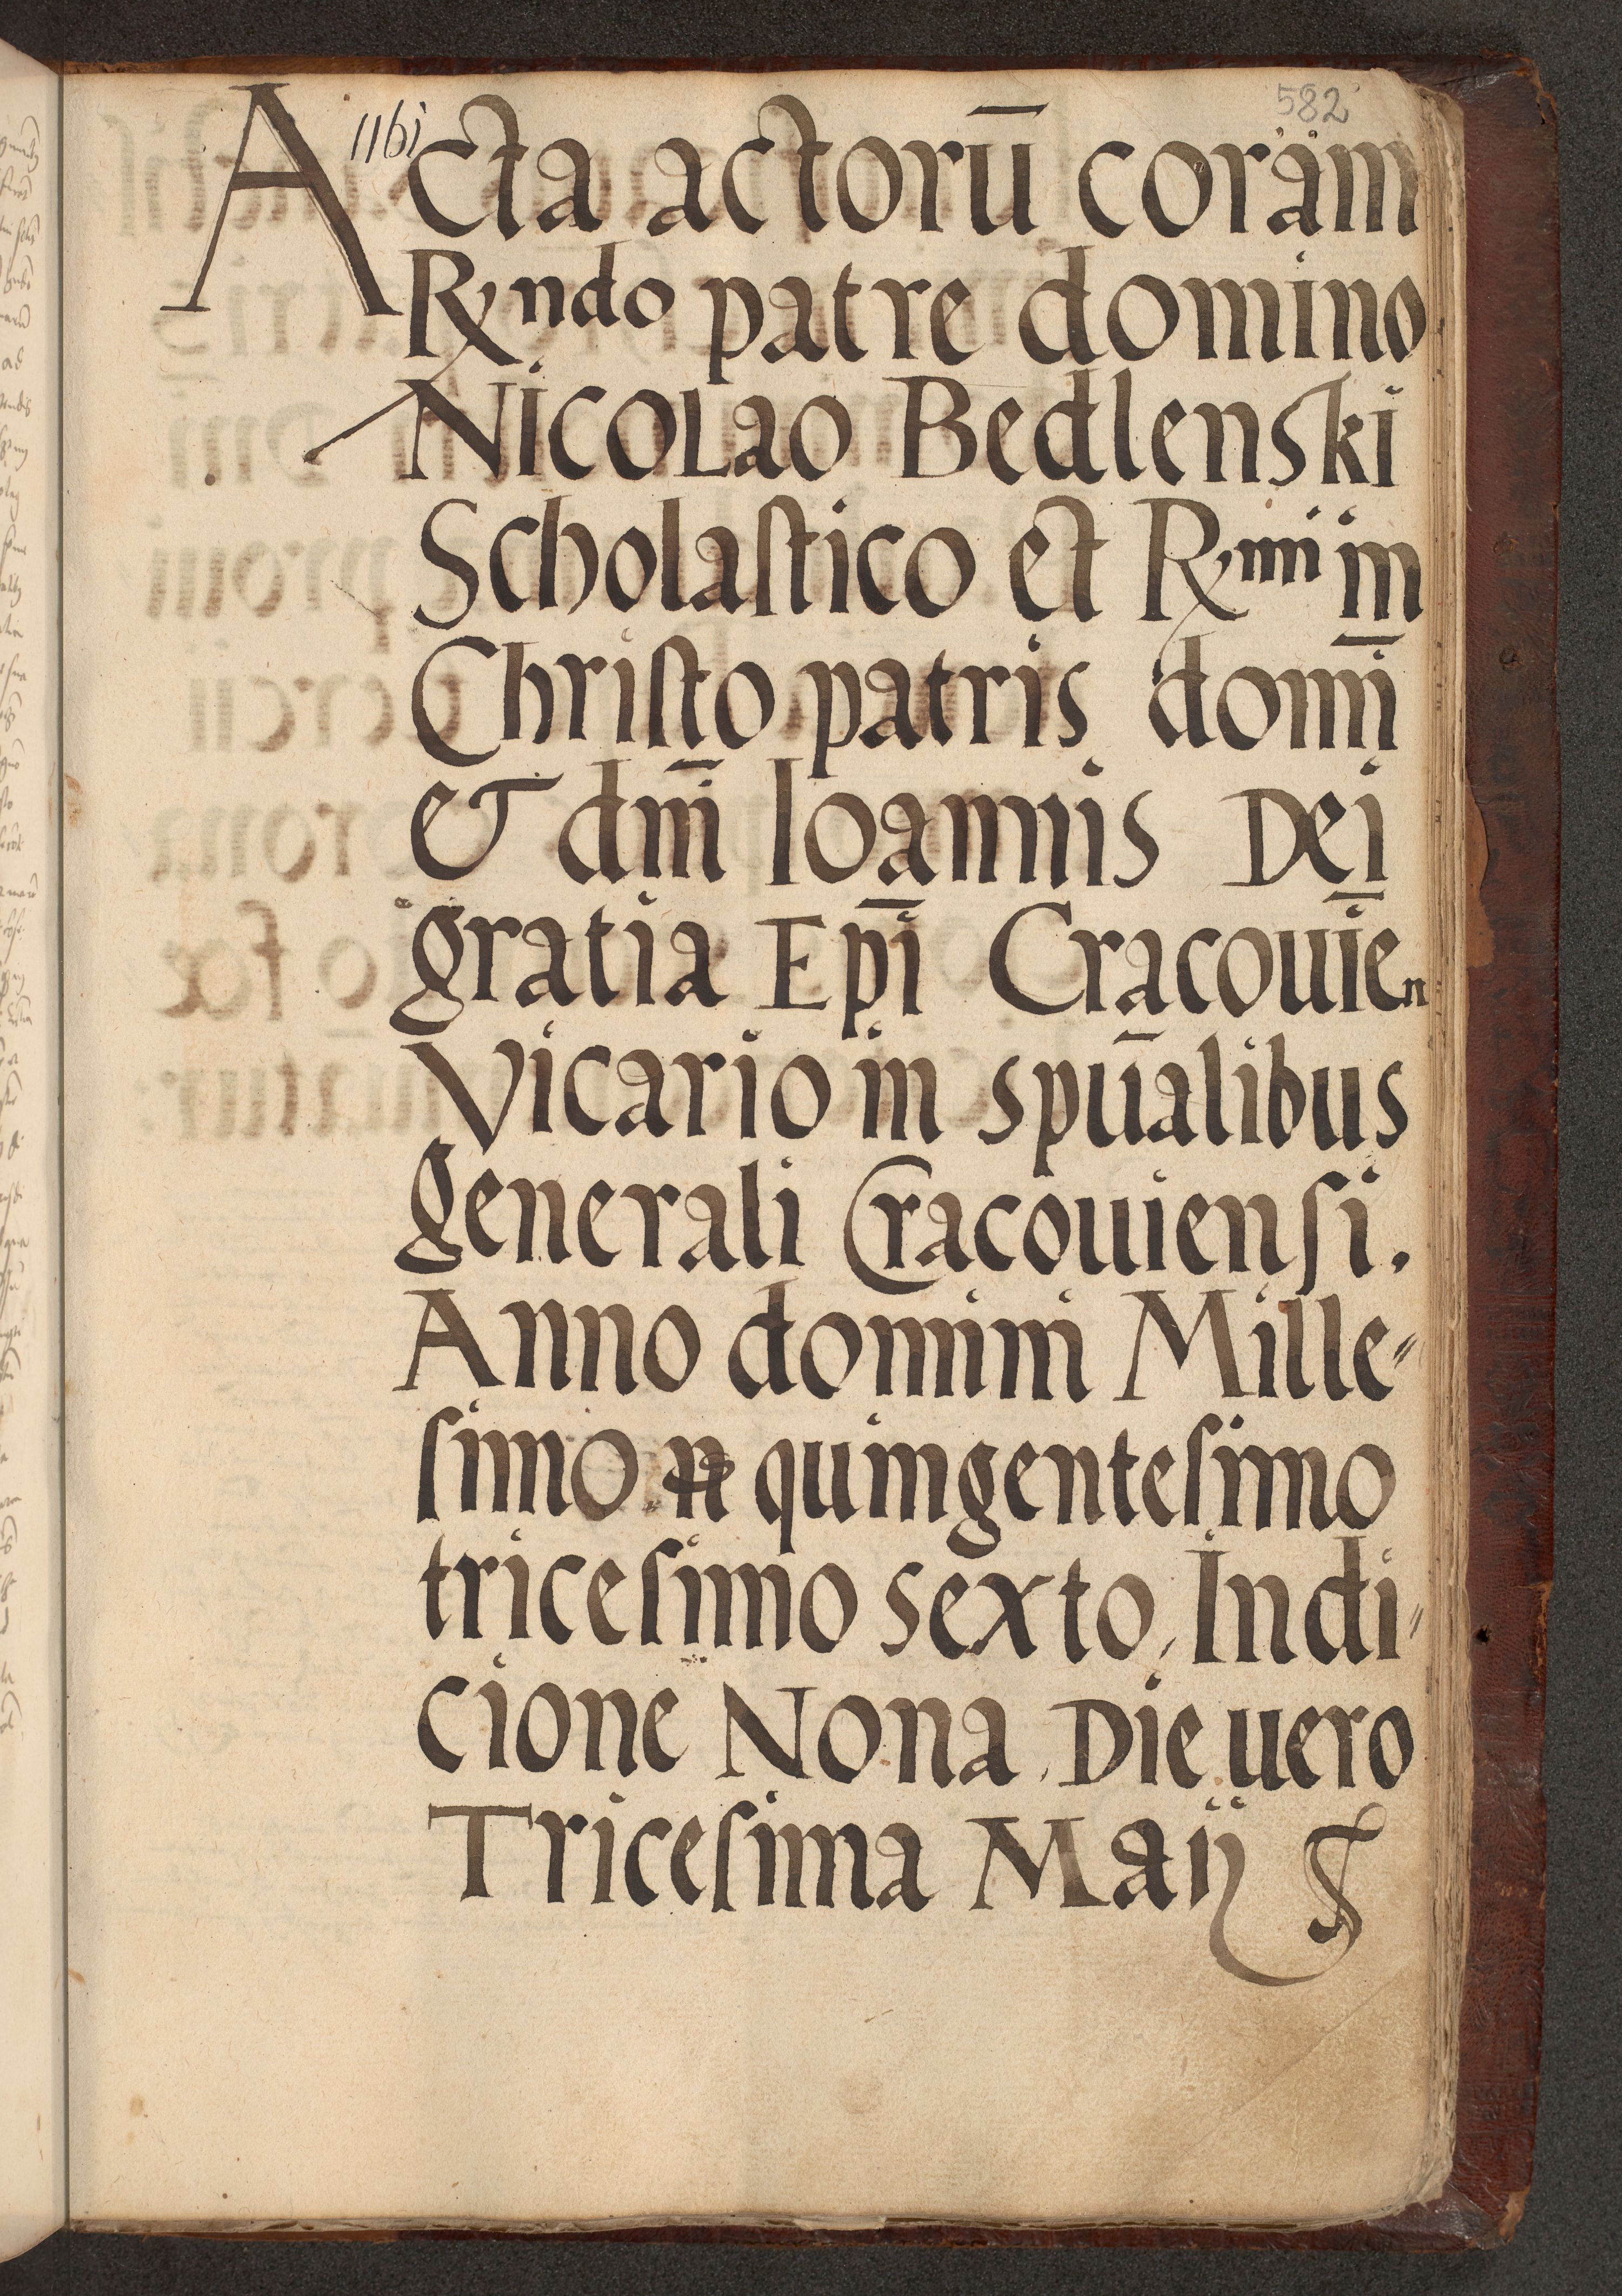 582
1161
Acta actorū coram
Rndo patre domino
Nicolao Bedlenski
Scholaſtico et Rmi in
Chriſto patris domī
et dnī Ioannis Dei
gratia Epī Cracouien̄
Vicario in spūalibus
generali Cracouienſi.
Anno domini Mille〃
ſimo quingenteſimo
triceſimo sexto, Indi〃
cione Nona, Die uero
Triceſima Maij